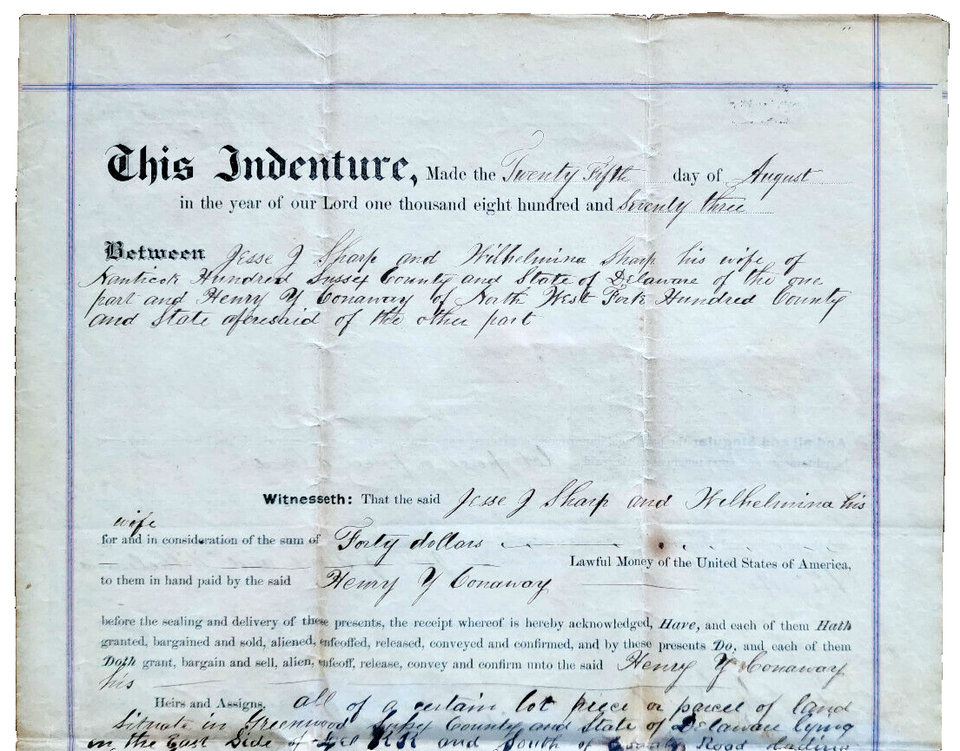 This Indenture, Made the Twenty Fifth day of August
in the year of our Lord one thousand eight hundred and Seventy three
Between Jesse J Sharp and Wilhelmina Sharp his wife of
Nanticok Hundred Sussex County and State of Delaware of the one
part and Henry Y Conaway of North West Fork Hundred County
and State aforesaid of the other part
Witnesseth: That the said Jesse J Sharp and Wilhelmina his
wife
for and in consideration of the sum of Forty dollars
Lawful Money of the United States of America,
to them in hand paid by the said Henry Y Conaway
before the sealing and delivery of these presents, the receipt whereof is hereby acknowledged, Have, and each of them Hath
granted, bargained and sold, aliened, enfeoffed, released, conveyed and confirmed, and by these presents Do, and each of them
Doth grant, bargain and sell, alien, enfeoff, release, convey and confirm unto the said Henry Y Conaway
his
Heirs and Assigns, all of a certain lot piece or parcel of land
Situate in Greenwood Sussex County and State of Delaware lying
on the East Side of Del RR and South of County Road